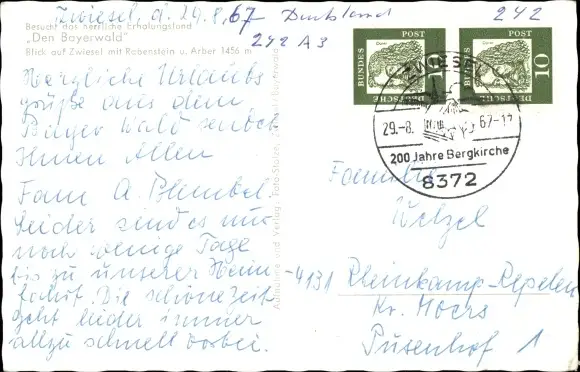 Zwiesel, d. 29.8.67 Deutschland
242
Besucht das herrliche Erholungsland
„Den Bayerwald"
Blick auf Zwiesel mit Rabenstein u. Arber 1456 m
242 A 3
Herzliche Urlaubs
grüße aus dem
Bayer Wald sendet
Ihnen Allen
Fam A. Blembel.
Leider sind es nur
noch wenige Tage
bis zu unserer Heim
fahrt. Die schöne Zeit
geht leider immer
allzu schnell vorbei.
Aufnahme und Verlag: Foto-
DEUTSCHE BUNDESPOST
10
DEUTSCHE BUNDESPOST
10
ZWIESEL
29.-8. 67-17
200 Jahre Bergkirche
8372
Familie
Wetzel
4131 Rheinkamp-Repelen
Kr. Moers
Püsenhof 1